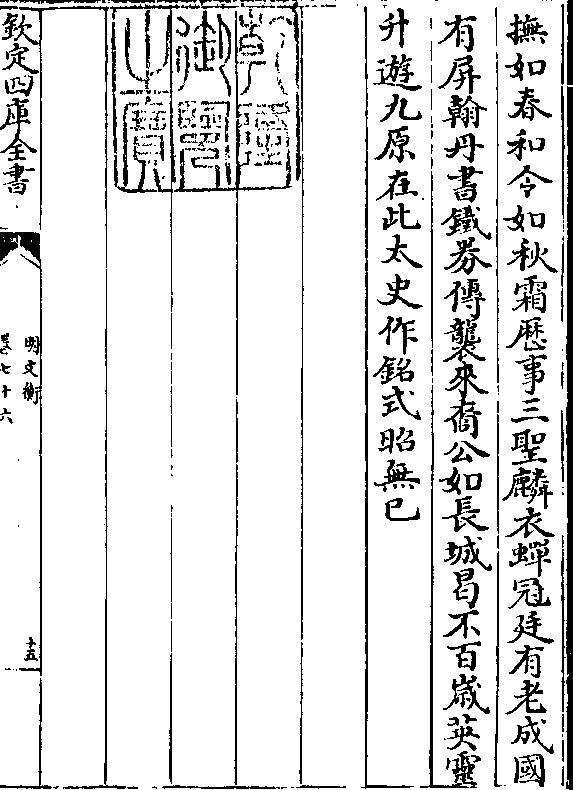 撫如春和令如秋霜歴事三聖麟衣蟬冠廷有老成國
有屏翰丹書鐵券傳襲來裔公如長城曷不百嵗英靈
升遊九原在此太史作銘式昭無已
乾隆御覽之寶
欽定四庫全書
明文衡
卷七十六
十五